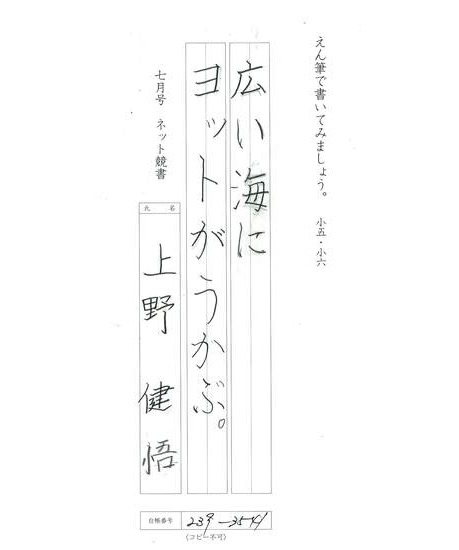 えん筆で書いてみましょう。 小五・小六
広い海に
ヨットがうかぶ。
七月号 ネット競書
氏名
上野 健悟
台帳番号
239-3541
(コピー不可)